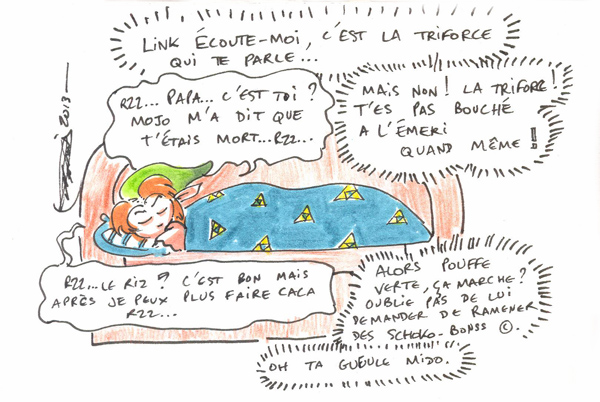 LINK ÉCOUTE-MOI, C'EST LA TRIFORCE
QUI TE PARLE...
RZZ... PAPA... C'EST TOI ?
MOJO M'A DIT QUE
T'ÉTAIS MORT...RZZ...
MAIS NON! LA TRIFORCE!
T'ES PAS BOUCHÉ
A L'ÉMERI
QUAND MÊME!
RZZ...LE RIZ ? C'EST BON MAIS
APRÈS JE PEUX PLUS FAIRE CACA
RZZ...
ALORS POUFFE
VERTE, ÇA MARCHE?
OUBLIE PAS DE LUI
DEMANDER DE RAMENER
DES SCHOKO-BONSS ©.
OH TA GUEULE MIDO.
2013